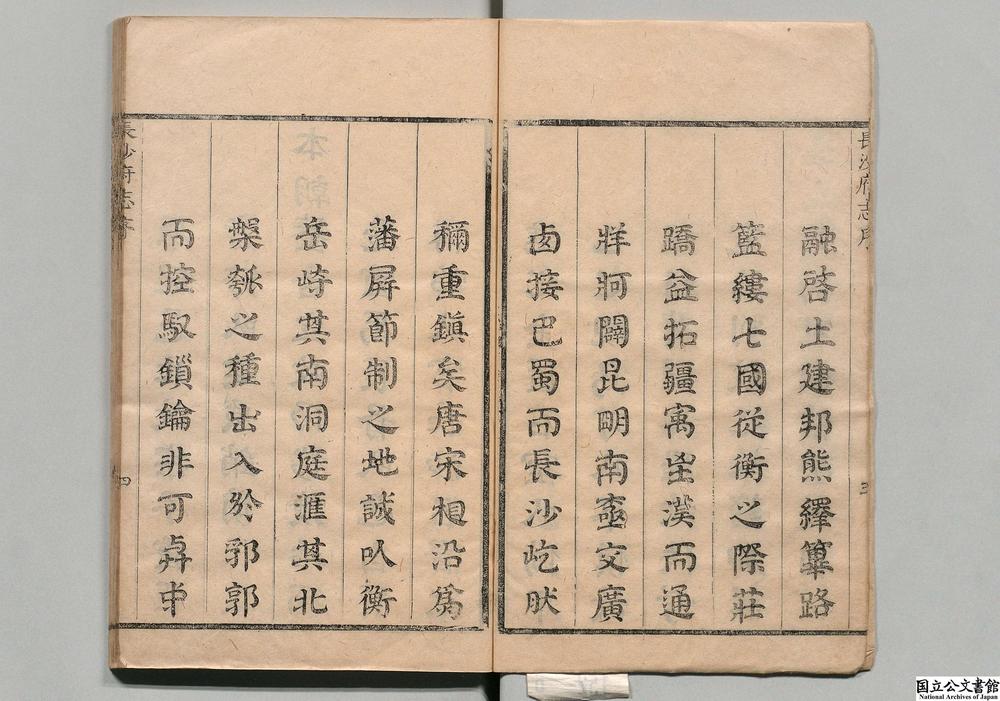 長沙府志序
三
融啓土建邦熊繹篳路
籃縷七國從衡之際莊
蹻益拓疆寓㞷漢而通
牂牁闢昆明南盡交廣
卥接巴蜀而長沙屹肰
穪重鎮矣唐宋相沿爲
藩屛節制之地誠㕥衡
岳峙其南洞庭滙其北
槃瓠之種出入於郛郭
而控馭鎖鑰非可
長沙府志序
四
国立公文書館
National Archives of Japan